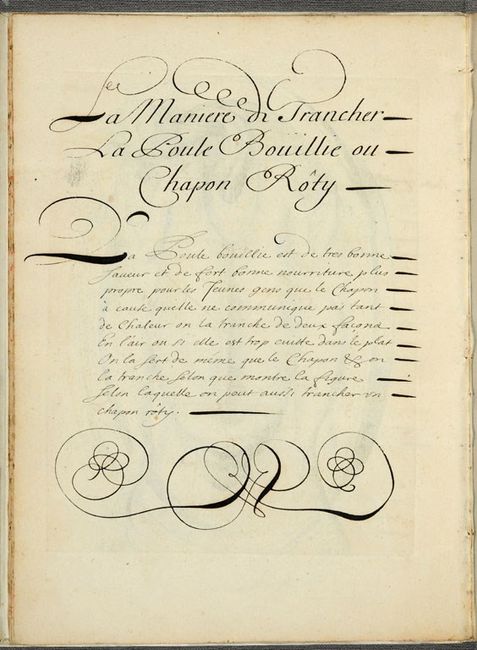 La Maniere de Trancher
La Poule Boüillie ou
Chapon Rôty
La Poule bouillie est de tres bonne
saveur et de fort bonne nourriture plus
propre pour les Jeunes gens que le Chapon
à cause quelle ne communique pas tant
de Chaleur on la tranche de deux façons
En l'air ou si elle est trop cuitte dans le plat
On la sert de même que le Chapon & on
la tranche selon que montre la figure
selon laquelle on peut aussi trancher un
chapon rôty.